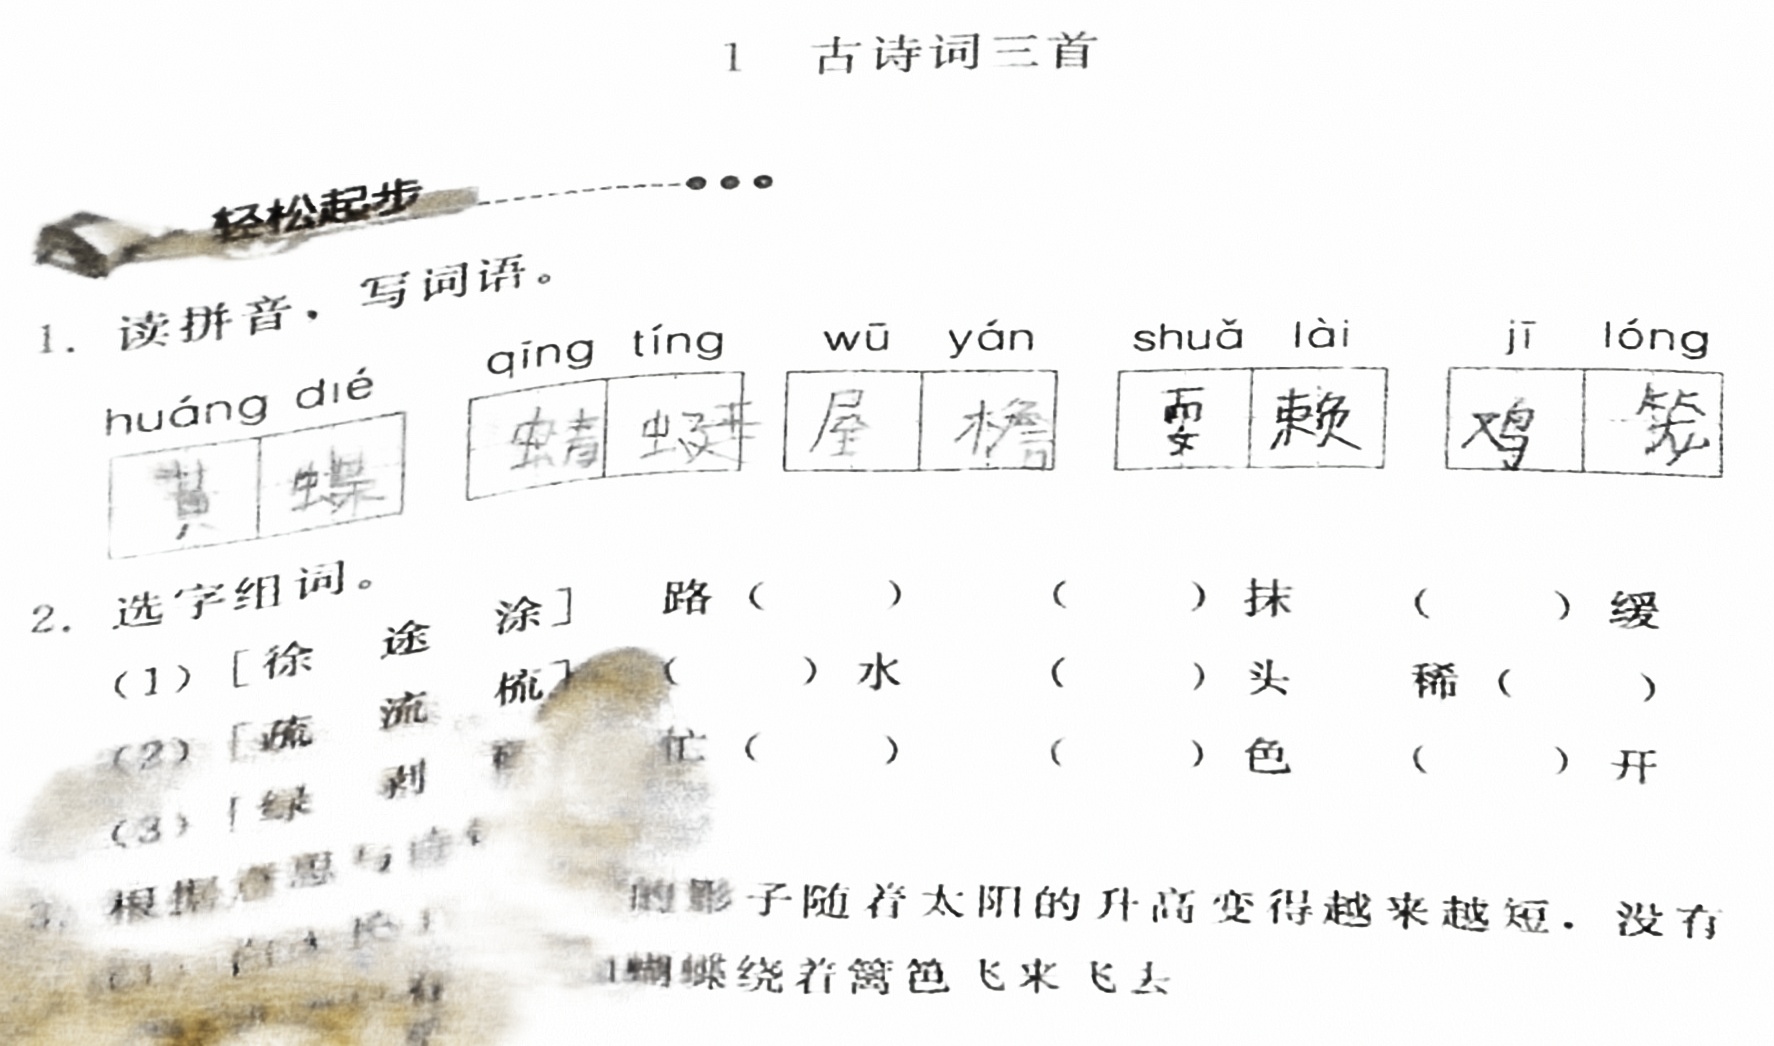 1 古诗词三首
轻松起步
1. 读拼音，写词语。
huáng dié qīng tíng wū yán shuǎ lài jī lóng
黄 蝶 蜻 蜓 屋 檐 耍 赖 鸡 笼
2. 选字组词。
(1) [徐 途 涂] 路( ) ( )抹 ( )缓
(2) [疏 流 梳] ( )水 ( )头 稀( )
(3) [绿 剥 忙( ) ( )色 ( )开
3. 根据意思与诗
的影子随着太阳的升高变得越来越短．没有
蝴蝶绕着篱笆飞来飞去